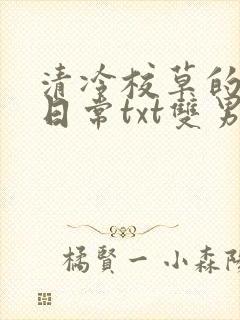 清冷校草的
日常txt雙男
橘賢一 小森陽